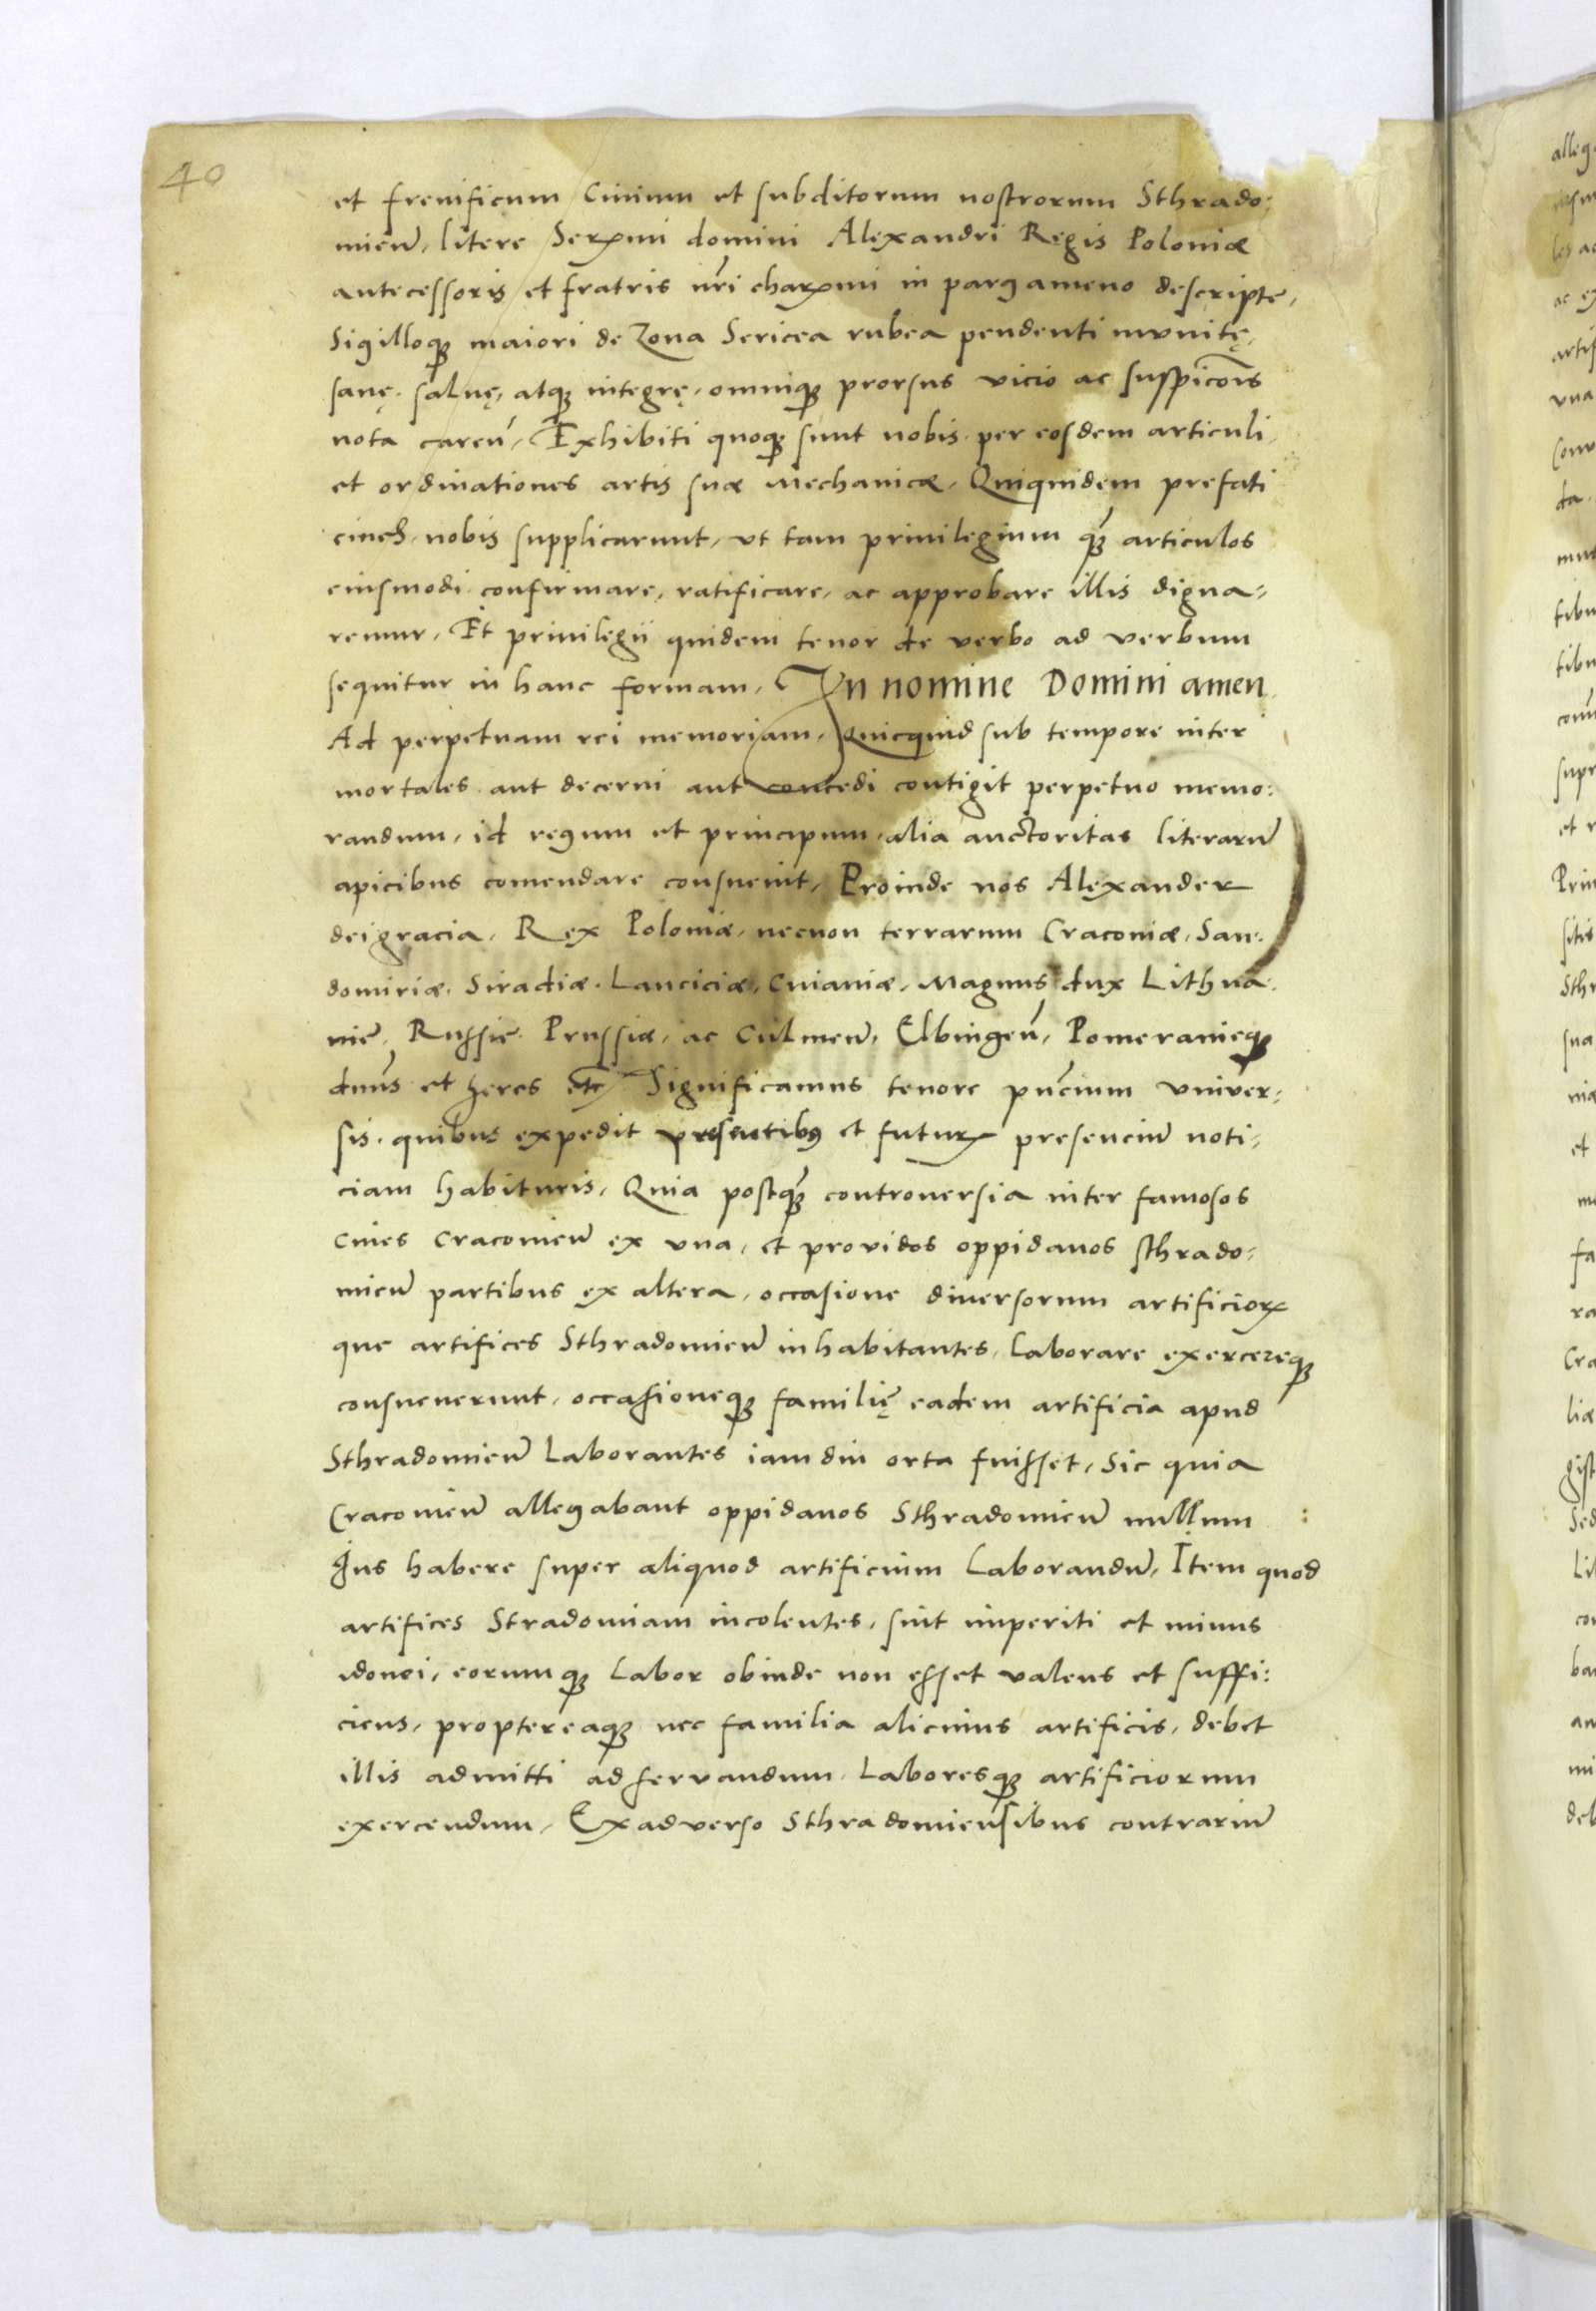 40
et frenificum Ciuium et subditorum nostrorum Sthrado:
mień, litere Serꝫmi domini Alexandri Regis Poloniæ
antecessoris et fratris nr̃i charꝫmi in pargameno descripte,
Sigilloqꝫ maiori de Zona Sericea rubea pendenti mvnitę,
sanę. saluę, atqꝫ integrę, omniqꝫ prorsus vicio ac suspicōis
nota careñ, Exhibiti quoqꝫ sunt nobis per eosdem articuli,
et ordinationes artis suæ Mechanicæ, Quiquidem prefati
ciues, nobis supplicarunt, vt tam priuilegium qꝫ̃ articulos
eiusmodi confirmare, ratificare, ac approbare illis digna=
remur, Et priuilegii quidem tenor de verbo ad verbum
sequitur in hanc formam, In nomine Domini amen
Ad perpetuam rei memoriam, Quicquid sub tempore inter
mortales aut decerni aut concedi contigit perpetuo memo:
randum, id regum et principum alia auctoritas literarū
apicibus comendare consueuit, Proinde nos Alexander
dei gracia, Rex Poloniæ, necnon terrarum Cracouiæ, San:
domiriæ, Siradiæ, Lanciciæ, Cuiauiæ, Magnus dux Lithua:
nie, Russie, Prussiæ, ac Culmeñ, Elbingeñ, Pomeranieqꝫ
dn̄us et heres etc̃ Significamus tenore pn̄cium vniver:
sis, quibus expedit presentibꝰ et futurꝝ presenciū noti,
ciam habituris, Quia postqꝫ̃ controuersia inter famosos
Ciues Cracouień ex vna, et providos oppidanos sthrado:
mień partibus ex altera, occasione diuersorum artificioꝝ
que artifices Sthradomień inhabitantes, Laborare exercereqꝫ
consueuerunt, occasioneqꝫ familię eadem artificia apud
Sthradomień Laborantes iam diu orta fuisset, Sic quia
Cracouień allegabant oppidanos Sthradomień nullum
Jus habere super aliquod artificium Laborandū, Item quod
artifices Stradomiam incolentes, sint imperiti et minus
idonei, eorumqꝫ Labor obinde non esset valens et suffi:
ciens, proptereaqꝫ nec familia alicuius artificis, debet
illis admitti ad servandum Laboresqꝫ artificiorum
exercendum, Ex adverso Sthradomiensibus contrariū